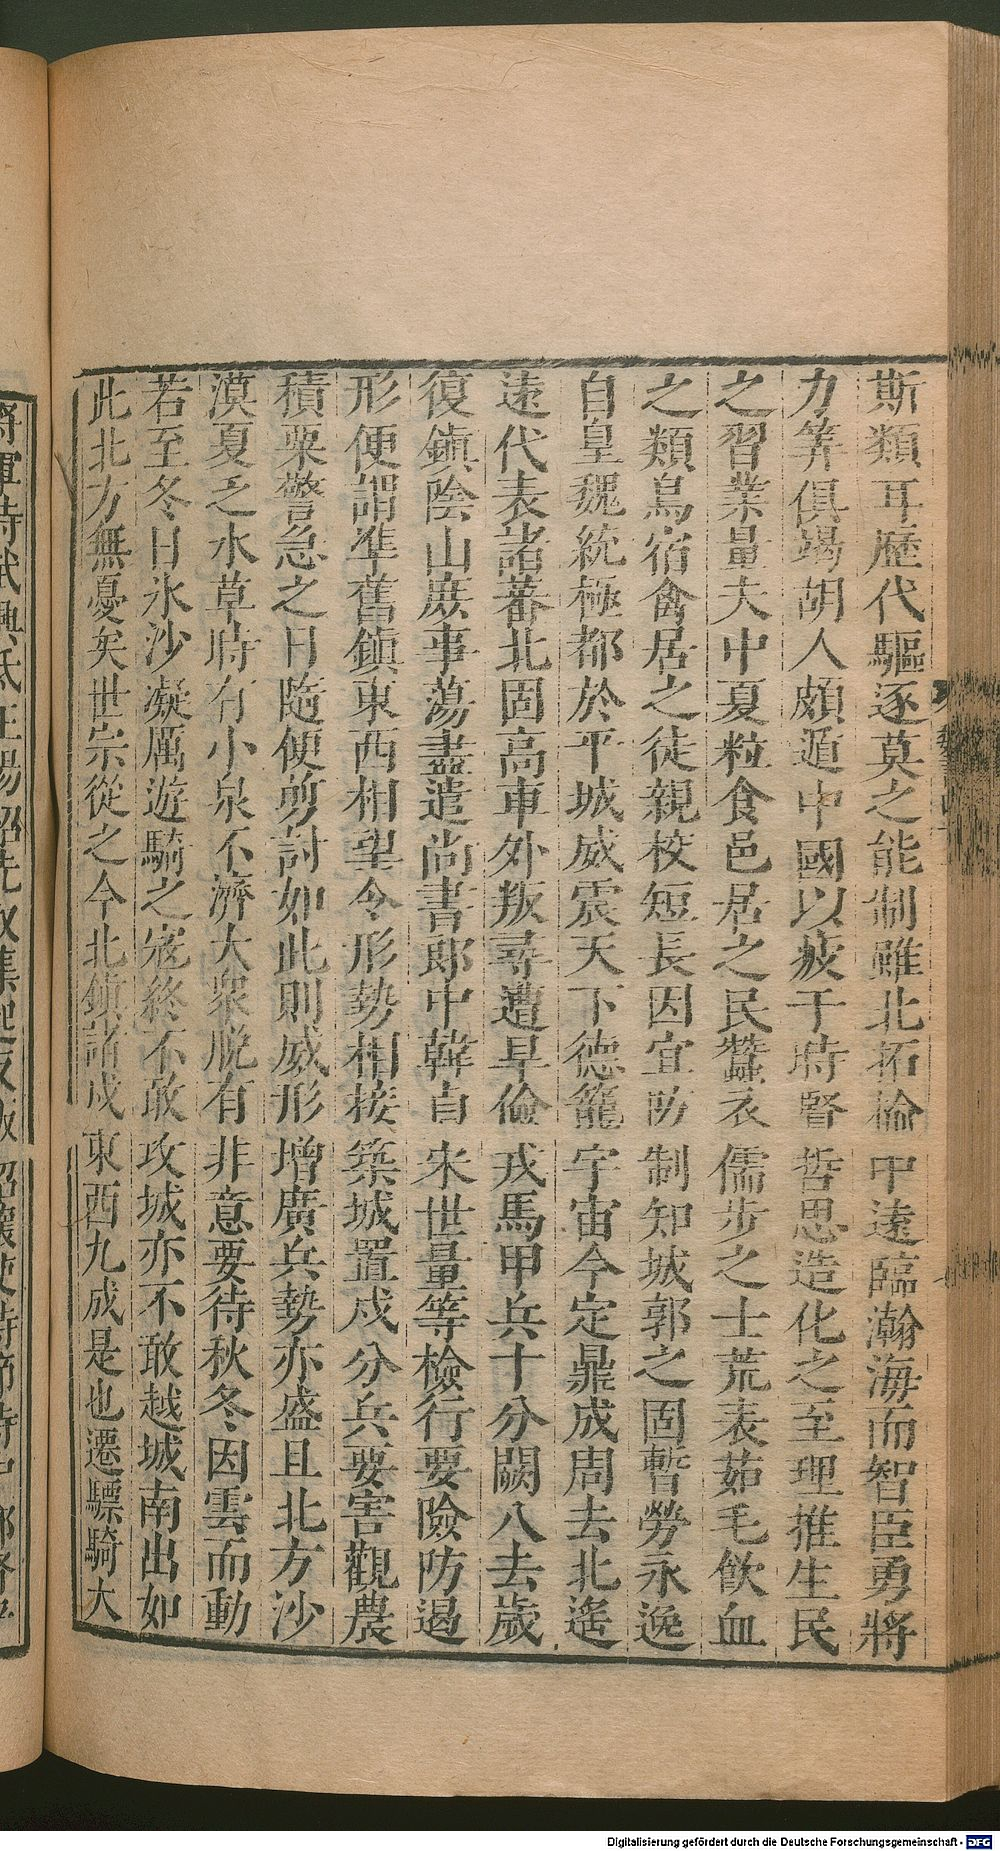 斯類耳歷代驅逐莫之能制雖北拓榆中遠臨瀚海而智臣勇將
力筭俱竭胡人頗遁中國以疲于時賢哲思造化之至理推生民
之習業量夫中夏粒食邑居之民蠶衣儒步之士荒表茹毛飲血
之類鳥宿禽居之徒親校短長因宜防制知城郭之固暫勞永逸
自皇魏統極都於平城威震天下德籠宇宙今定鼎成周去北遙
遠代表諸蕃北固高車外叛尋遭旱儉戎馬甲兵十分闕八去歲
復鎮陰山庶事蕩盡遣尚書郎中韓自宋世量等檢行要險防遏
形便謂準舊鎮東西相望令形勢相接築城置戍分兵要害觀農
積粟警急之日隨便剪討如此則威形增廣兵勢亦盛且北方沙
漠夏乏水草時有小泉不濟大衆脱有非意要待秋冬因雲而動
若至冬日氷沙凝厲遊騎之寇終不敢攻城亦不敢越城南出如
此北方無憂矣世宗從之今北鎮諸戍東西九成是也遷驃騎大
Digitalisierung gefördert durch die Deutsche Forschungsgemeinschaft - DFG